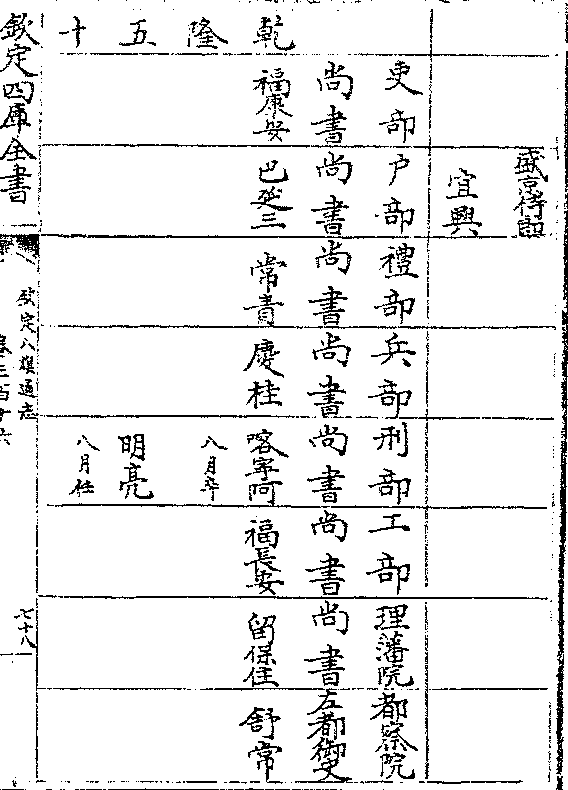 盛京侍郎
宜興
吏部
尚書
户部
尚書
禮部
尚書
兵部
尚書
刑部
尚書
工部
尚書
理藩院
尚書
都察院
左都御史
乾隆五十
福康安
巴延三
常青
慶桂
喀寧阿
八月卒
明亮
八月任
福長安
留保住
舒常
欽定四庫全書
欽定八旗通志
卷三百十六
七十八